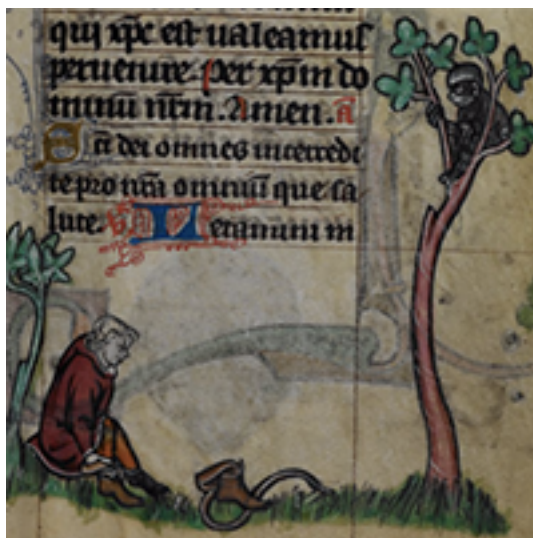 qui xpc est ualeamus
peruenire. Per xpm do
minū nrm. Amen. a
Sci dei omnes intercedi
te pro nra omniū que sa
lute. V Letamini in